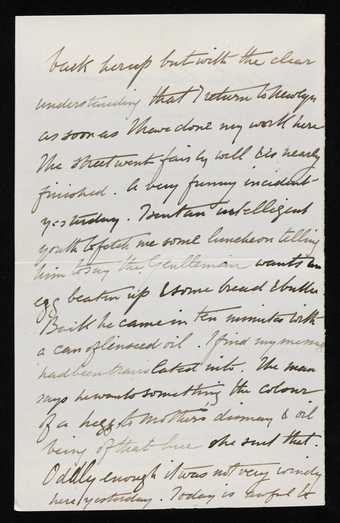 back here up but with the clear
understanding that I return to Newlyn
as soon as I have done my work here
The street went fairly well & is nearly
finished. A very funny incident
yesterday. I sent an intelligent
youth to fetch me some luncheon telling
him to say the Gentleman wants an
egg beaten up & some bread & butter.
Back he came in ten minutes with
a can of linseed oil. I find my message
had been translated into. The man
says he wants something the colour
of a hegg to Mothers dismay & oil
being of that hue she sent that.
Oddly enough it was not very windy
here yesterday. Today is awful &